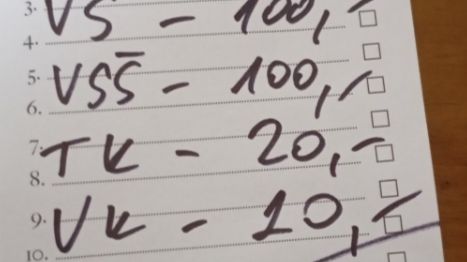 3. VS - 100,-
4.
5. VSS̅ - 100,-
6.
7. TK - 20,-
8.
9. VK - 10,-
10.